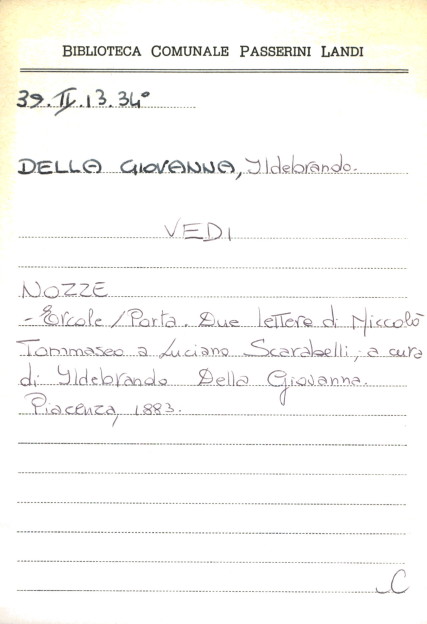 BIBLIOTECA COMUNALE PASSERINI LANDI
39.II.13.34°
DELLA GIOVANNA, Ildebrando.
VEDI
NOZZE
- Ercole / Porta. Due lettere di Niccolò
Tommaseo a Luciano Scarabelli, a cura
di Ildebrando Della Giovanna.
Piacenza, 1883.
C